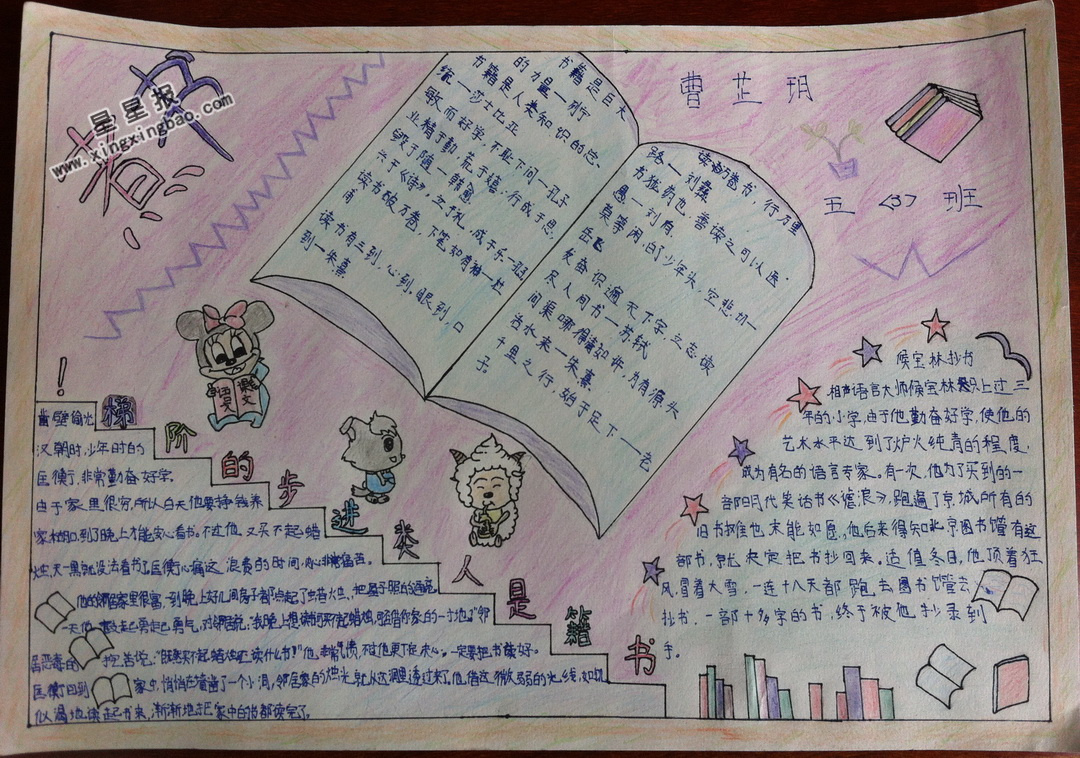 读书
星星报
www.xingxingbao.com
曹芷玥
五〈3〉班
书籍是巨大
的力量——列宁
书籍是人类知识的总
统——莎士比亚
敏而好学，不耻下问——孔子
业精于勤，荒于嬉；行成于思，
毁于随——韩愈
兴于《诗》，立于礼，成于乐——孔子
读书破万卷，下笔如有神——杜
甫
读书有三到，心到，眼到，口
到——朱熹
读书万卷书，行万里
路——刘彝
书犹药也，善读之可以医
愚——刘向
莫等闲，白了少年头，空悲切——
岳飞
发奋识遍天下字，立志读
尽人间书——苏轼
问渠哪得清如许，为有源头
活水来——朱熹
千里之行，始于足下——老
子
语文
课文
梯阶的步进类人是籍书
！
凿壁偷光
汉朝时，少年时的
匡衡，非常勤奋好学。
由于家里很穷，所以白天他要挣钱养
家糊口，到了晚上才能安心看书。不过他又买不起蜡
烛，天一黑就没法看书了。匡衡心痛这浪费的时间，内心非常痛苦。
他的邻居家里很富，到晚上好几间房子都点起了蜡烛，把屋子照的通亮。
一天他鼓起勇气，对邻居说：“我晚上想读书，可买不起蜡烛，能否借你家的一寸地。”邻
居恶毒的挖苦说：“既然买不起蜡烛还读什么书！”他非常气愤，不过他更下定决心。一定要把书读好。
匡衡回到家中，悄悄在墙凿了一个小洞，邻居家的烛光就从这洞里透过来了。他借这微弱的光线，如饥
似渴地读起书来，渐渐地把家中的书都读完了。
候宝林抄书
相声语言大师候宝林只上过三
年的小学，由于他勤奋好学，使他的
艺术水平达到了炉火纯青的程度，
成为有名的语言专家。有一次，他为了买到的一
部明代笑话书《谑浪》，跑遍了京城所有的
旧书摊也未能如愿。他后来得知北京图书馆有这
部书，就决定把书抄回来。适值冬日，他顶着狂
风，冒着大雪，一连十八天都跑去图书馆去
抄书，一部十多字的书，终于被他抄录到
手。